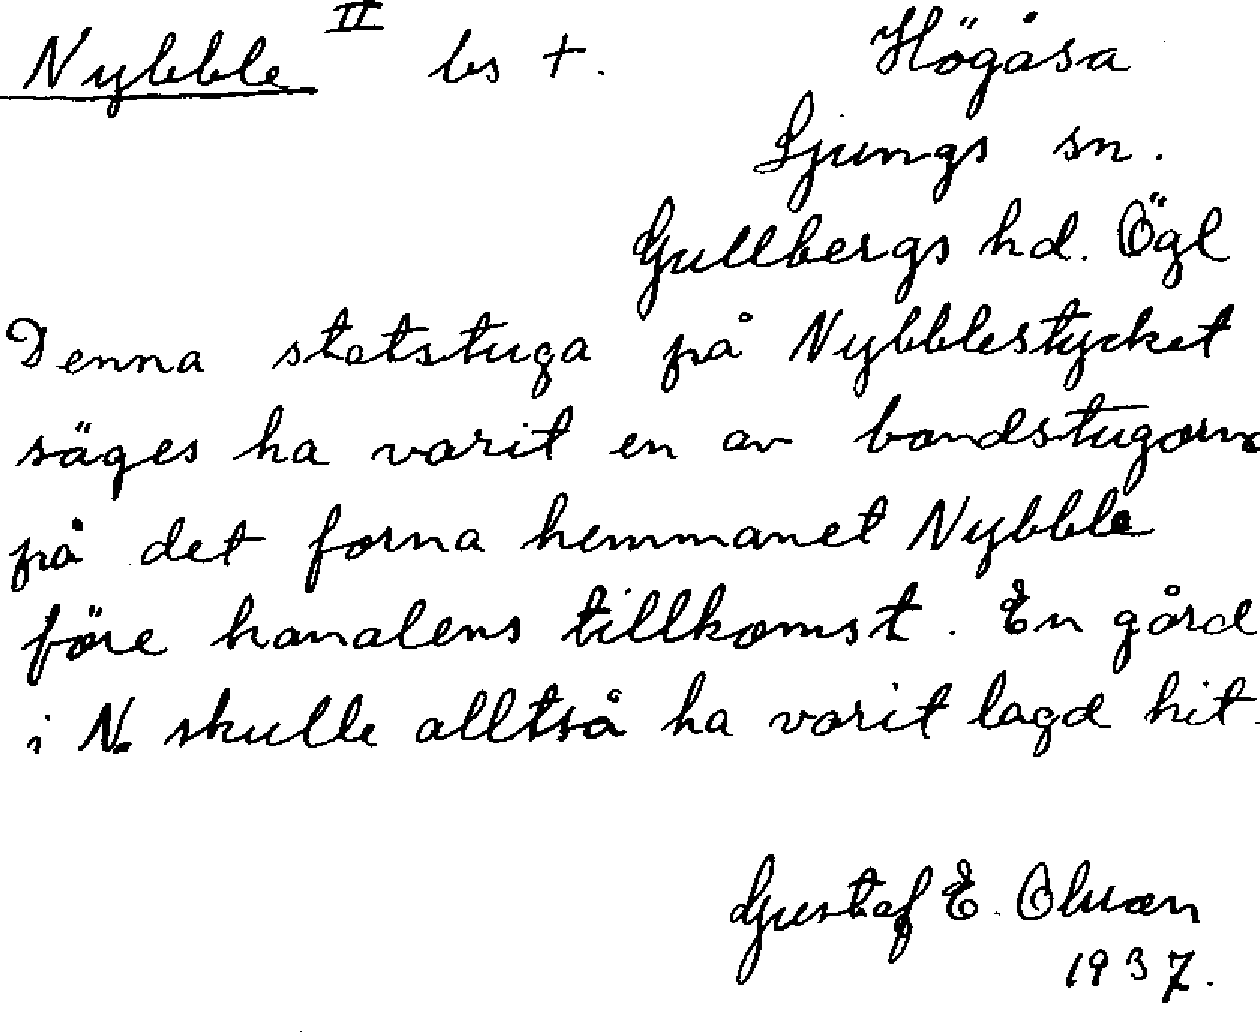 Nybble II bs +. Högåsa
Ljungs sn.
Gullbergs hd. Ögl
Denna statstuga på Nybblestycket
säges ha varit en av bondstugorna
på det forna hemmanet Nybble
före kanalens tillkomst. En gård
i N. skulle alltså ha varit lagd hit.
Gustaf E. Olsson
1937.